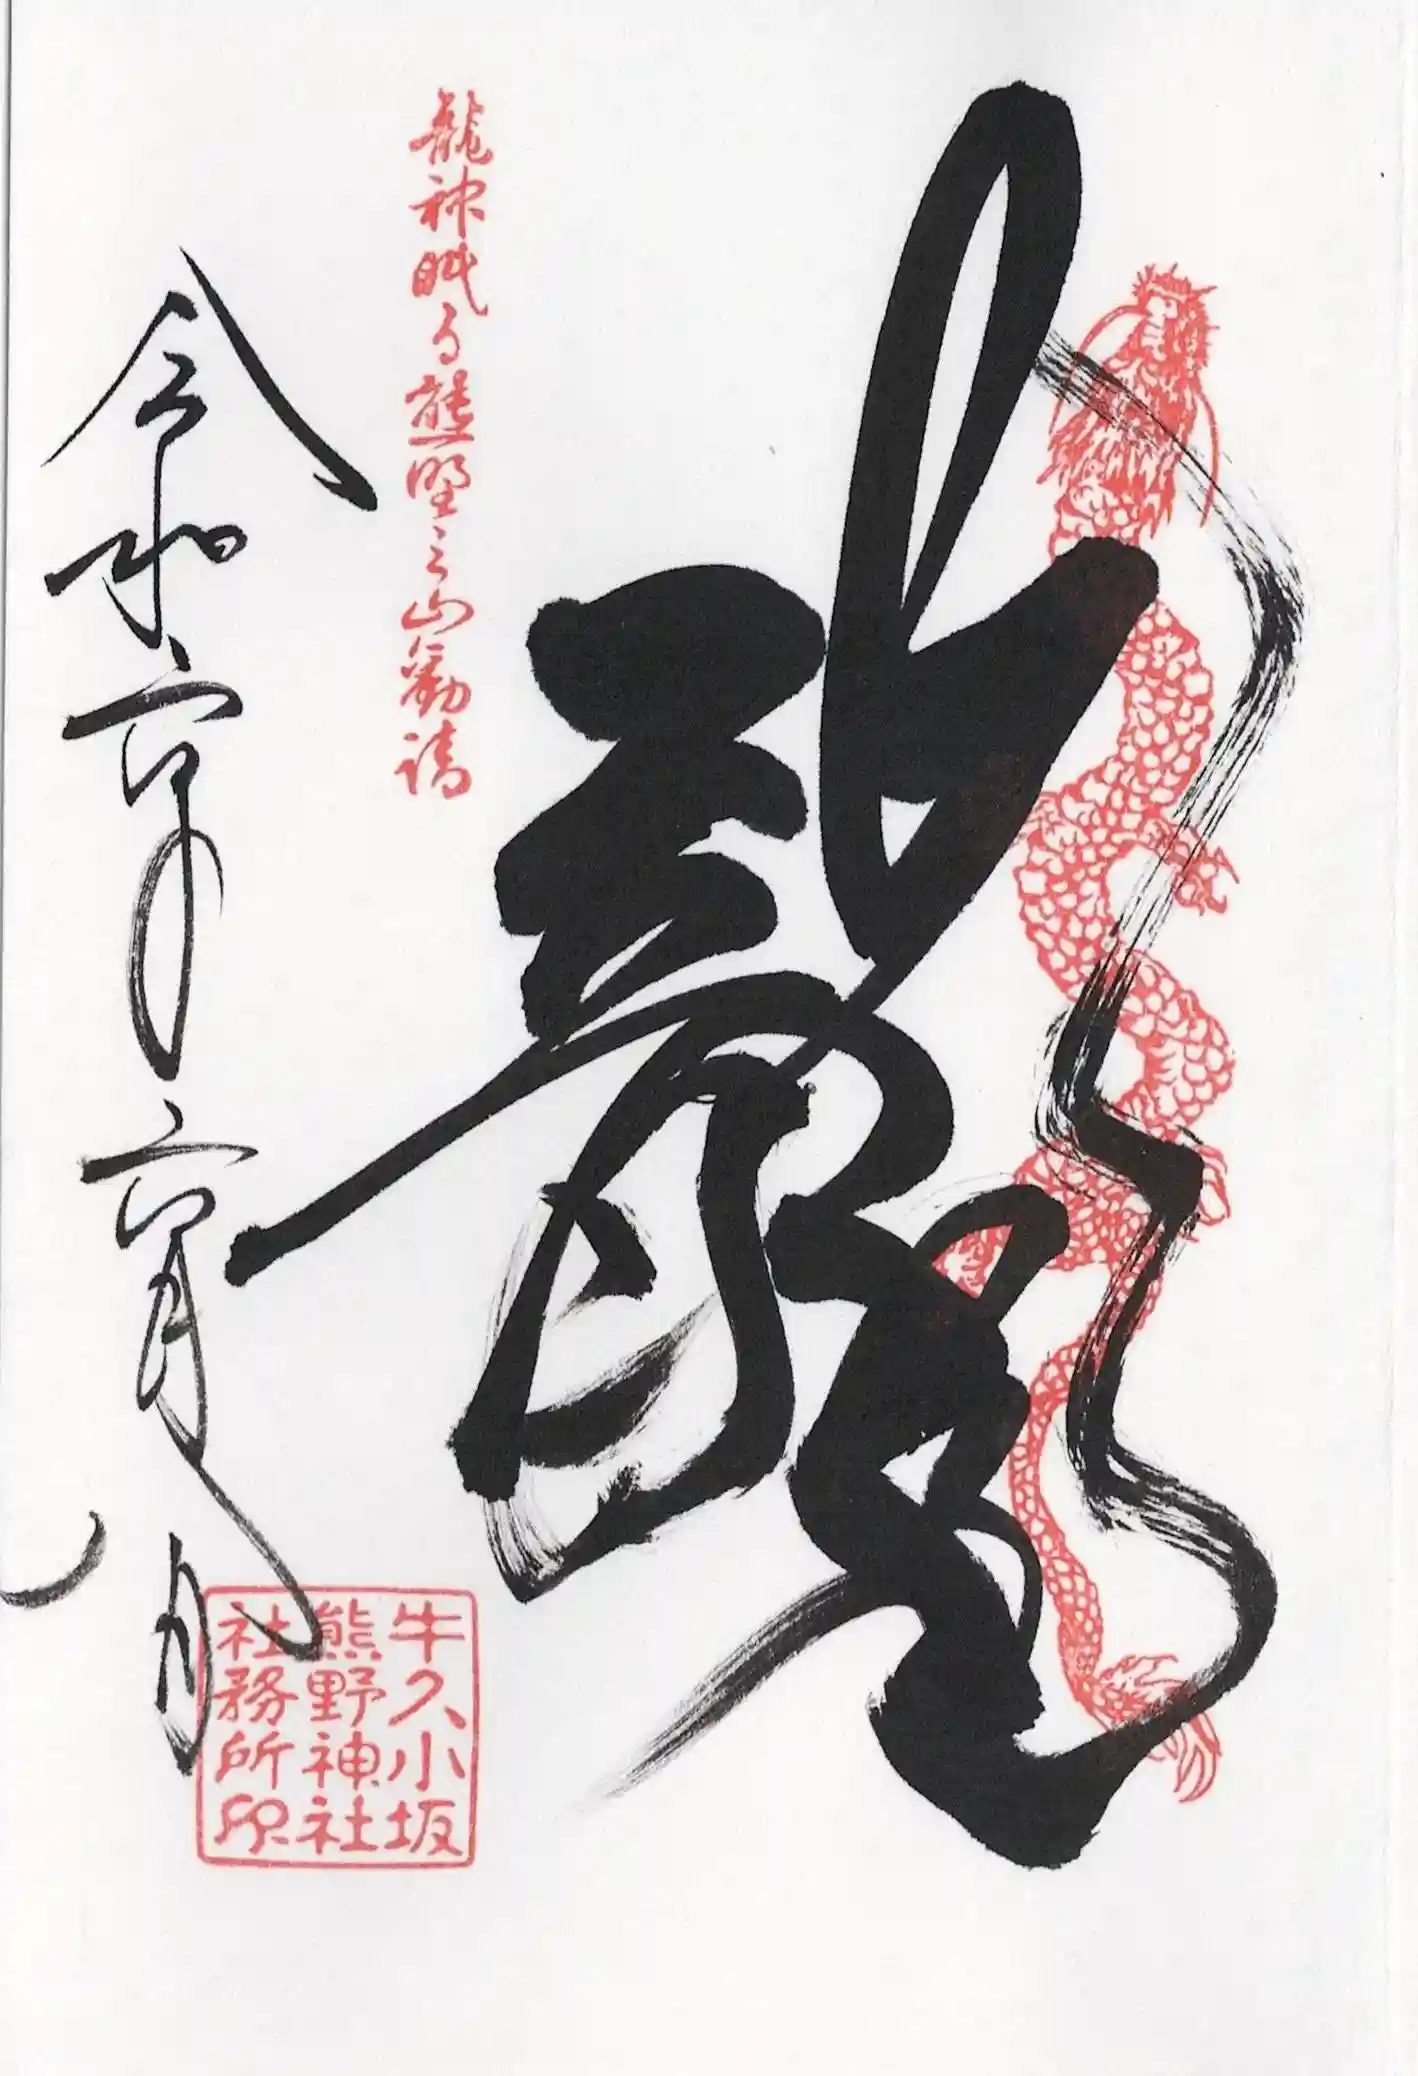 龍
龍神眠る熊野之山勧請
令和六年六月
牛久小坂
熊野神社
社務所印